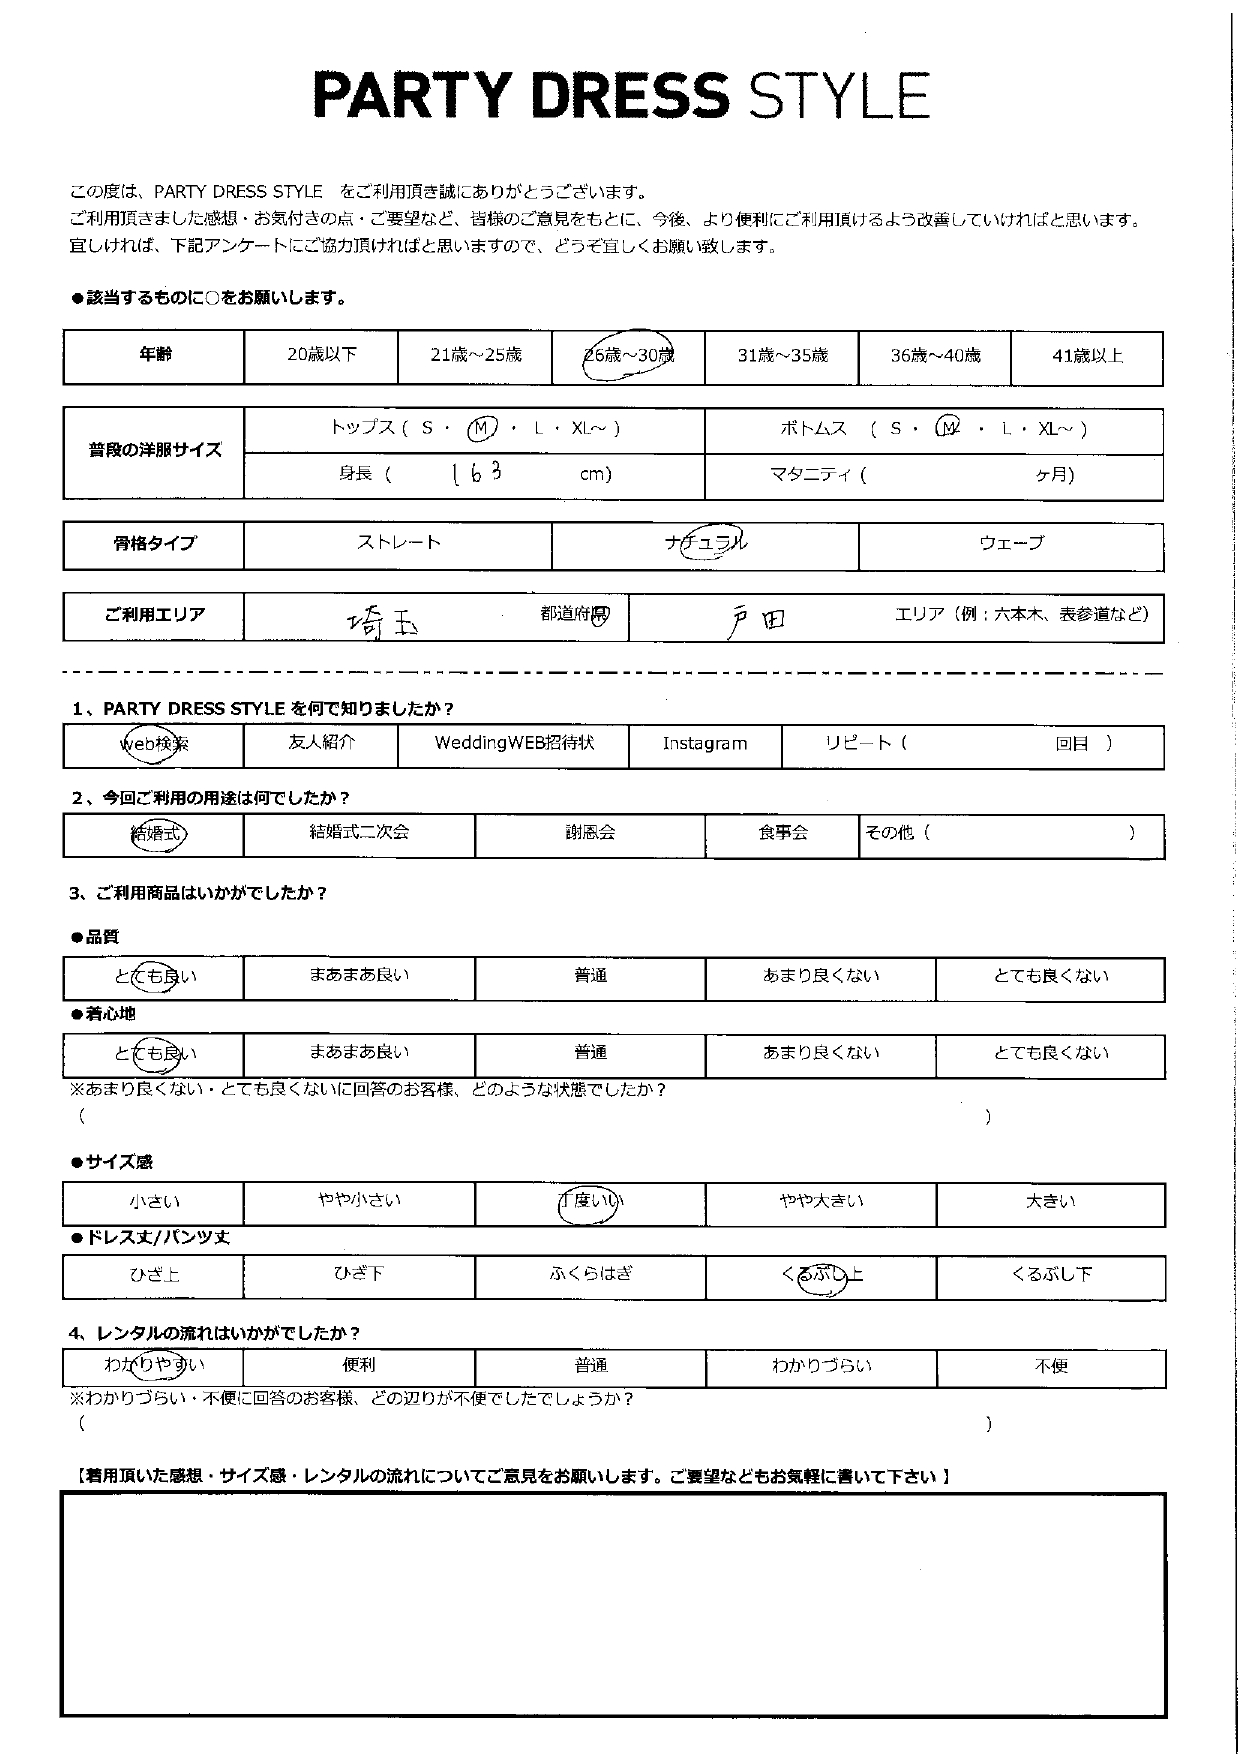 PARTY DRESS STYLE
この度は、PARTY DRESS STYLE をご利用頂き誠にありがとうございます。
ご利用頂きました感想・お気付きの点・ご要望など、皆様のご意見をもとに、今後、より便利にご利用頂けるよう改善していければと思います。
宜しければ、下記アンケートにご協力頂ければと思いますので、どうぞ宜しくお願い致します。
●該当するものに○をお願いします。
年齢 20歳以下 21歳～25歳 26歳～30歳 31歳～35歳 36歳～40歳 41歳以上
普段の洋服サイズ トップス ( S ・ M ・ L ・ XL～ ) ボトムス ( S ・ M ・ L ・ XL～ )
身長 ( 163 cm) マタニティ ( ヶ月)
骨格タイプ ストレート ナチュラル ウェーブ
ご利用エリア 埼玉 都道府県 戸田 エリア（例：六本木、表参道など）
1、PARTY DRESS STYLE を何で知りましたか？
web検索 友人紹介 WeddingWEB招待状 Instagram リピート ( 回目 )
2、今回ご利用の用途は何でしたか？
結婚式 結婚式二次会 謝恩会 食事会 その他 ( )
3、ご利用商品はいかがでしたか？
●品質
とても良い まあまあ良い 普通 あまり良くない とても良くない
●着心地
とても良い まあまあ良い 普通 あまり良くない とても良くない
※あまり良くない・とても良くないに回答のお客様、どのような状態でしたか？
( )
●サイズ感
小さい やや小さい 丁度いい やや大きい 大きい
●ドレス丈/パンツ丈
ひざ上 ひざ下 ふくらはぎ くるぶし上 くるぶし下
4、レンタルの流れはいかがでしたか？
わかりやすい 便利 普通 わかりづらい 不便
※わかりづらい・不便に回答のお客様、どの辺りが不便でしたでしょうか？
( )
【着用頂いた感想・サイズ感・レンタルの流れについてご意見をお願いします。ご要望などもお気軽に書いて下さい 】